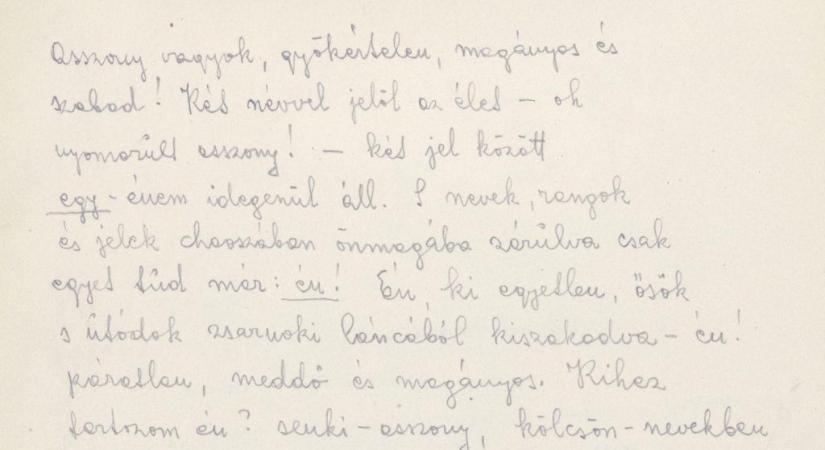 Asszony vagyok, gyökértelen, magányos és
szabad! Két névvel jelöl az élet – oh
nyomorult asszony! – két jel között
egy-énem idegenül áll. S nevek, rangok
és jelek chaoszában önmagába zárulva csak
egyet tud már: én! Én, ki egyetlen, ősök
s utódok zsarnoki láncából kiszakadva – én!
páratlan, meddő és magányos. Kihez
tartozom én? senki-asszony, kölcsön-nevekben